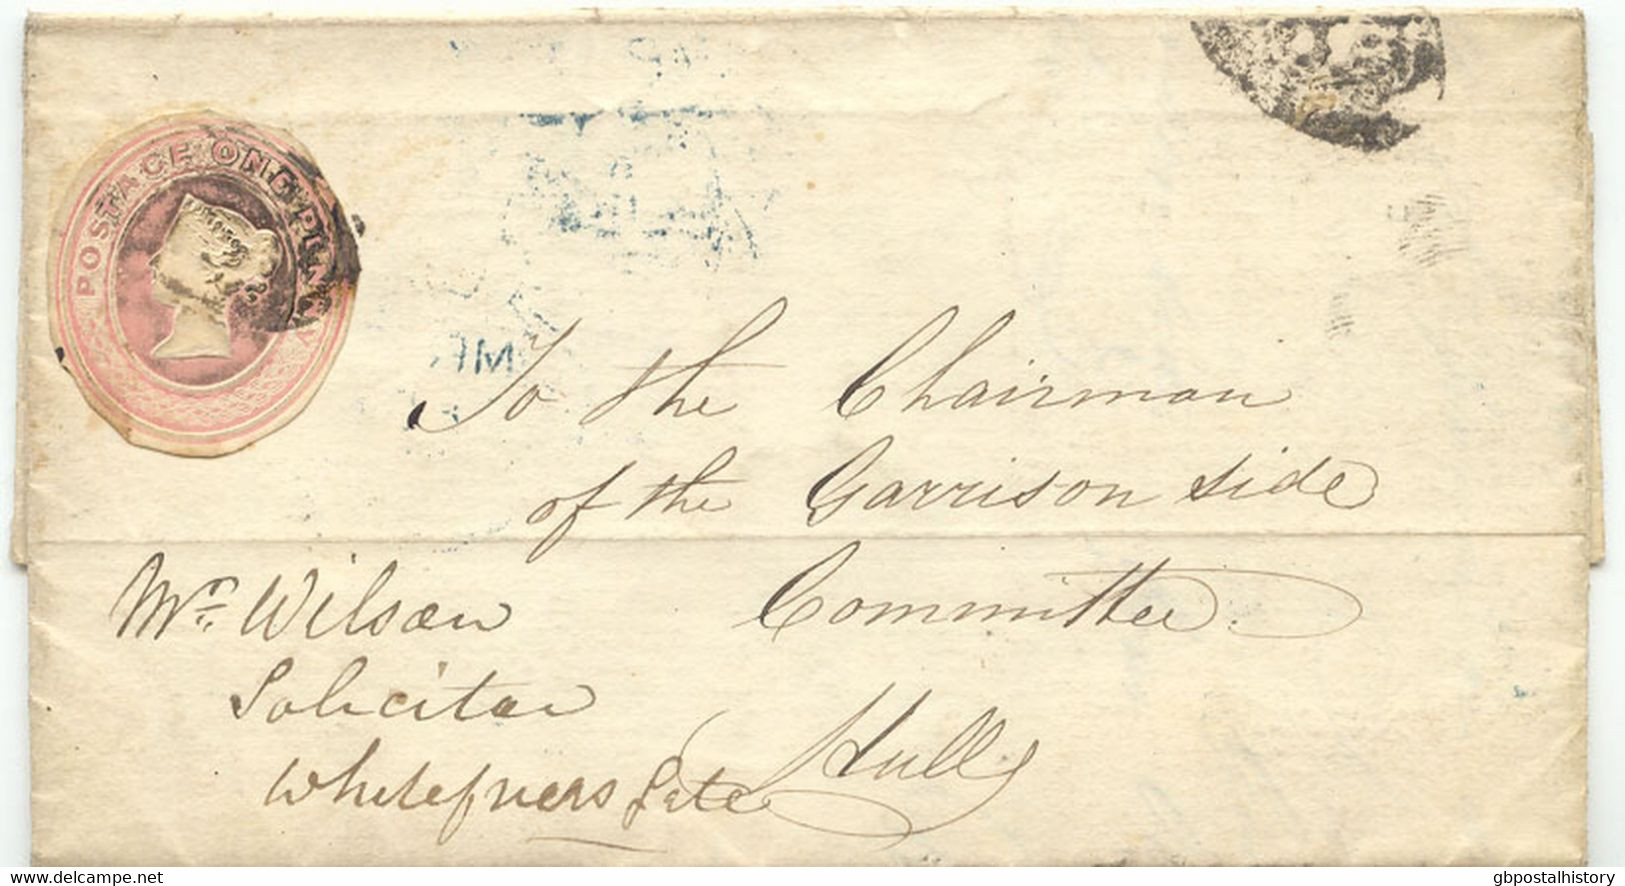 POSTAGE ONE PENNY
AM
To the Chairman
of the Garrison side
Committee
Mr. Wilson
Solicitor
Whitefriers Gate
Hull
delcampe.net
gbpostalhistory